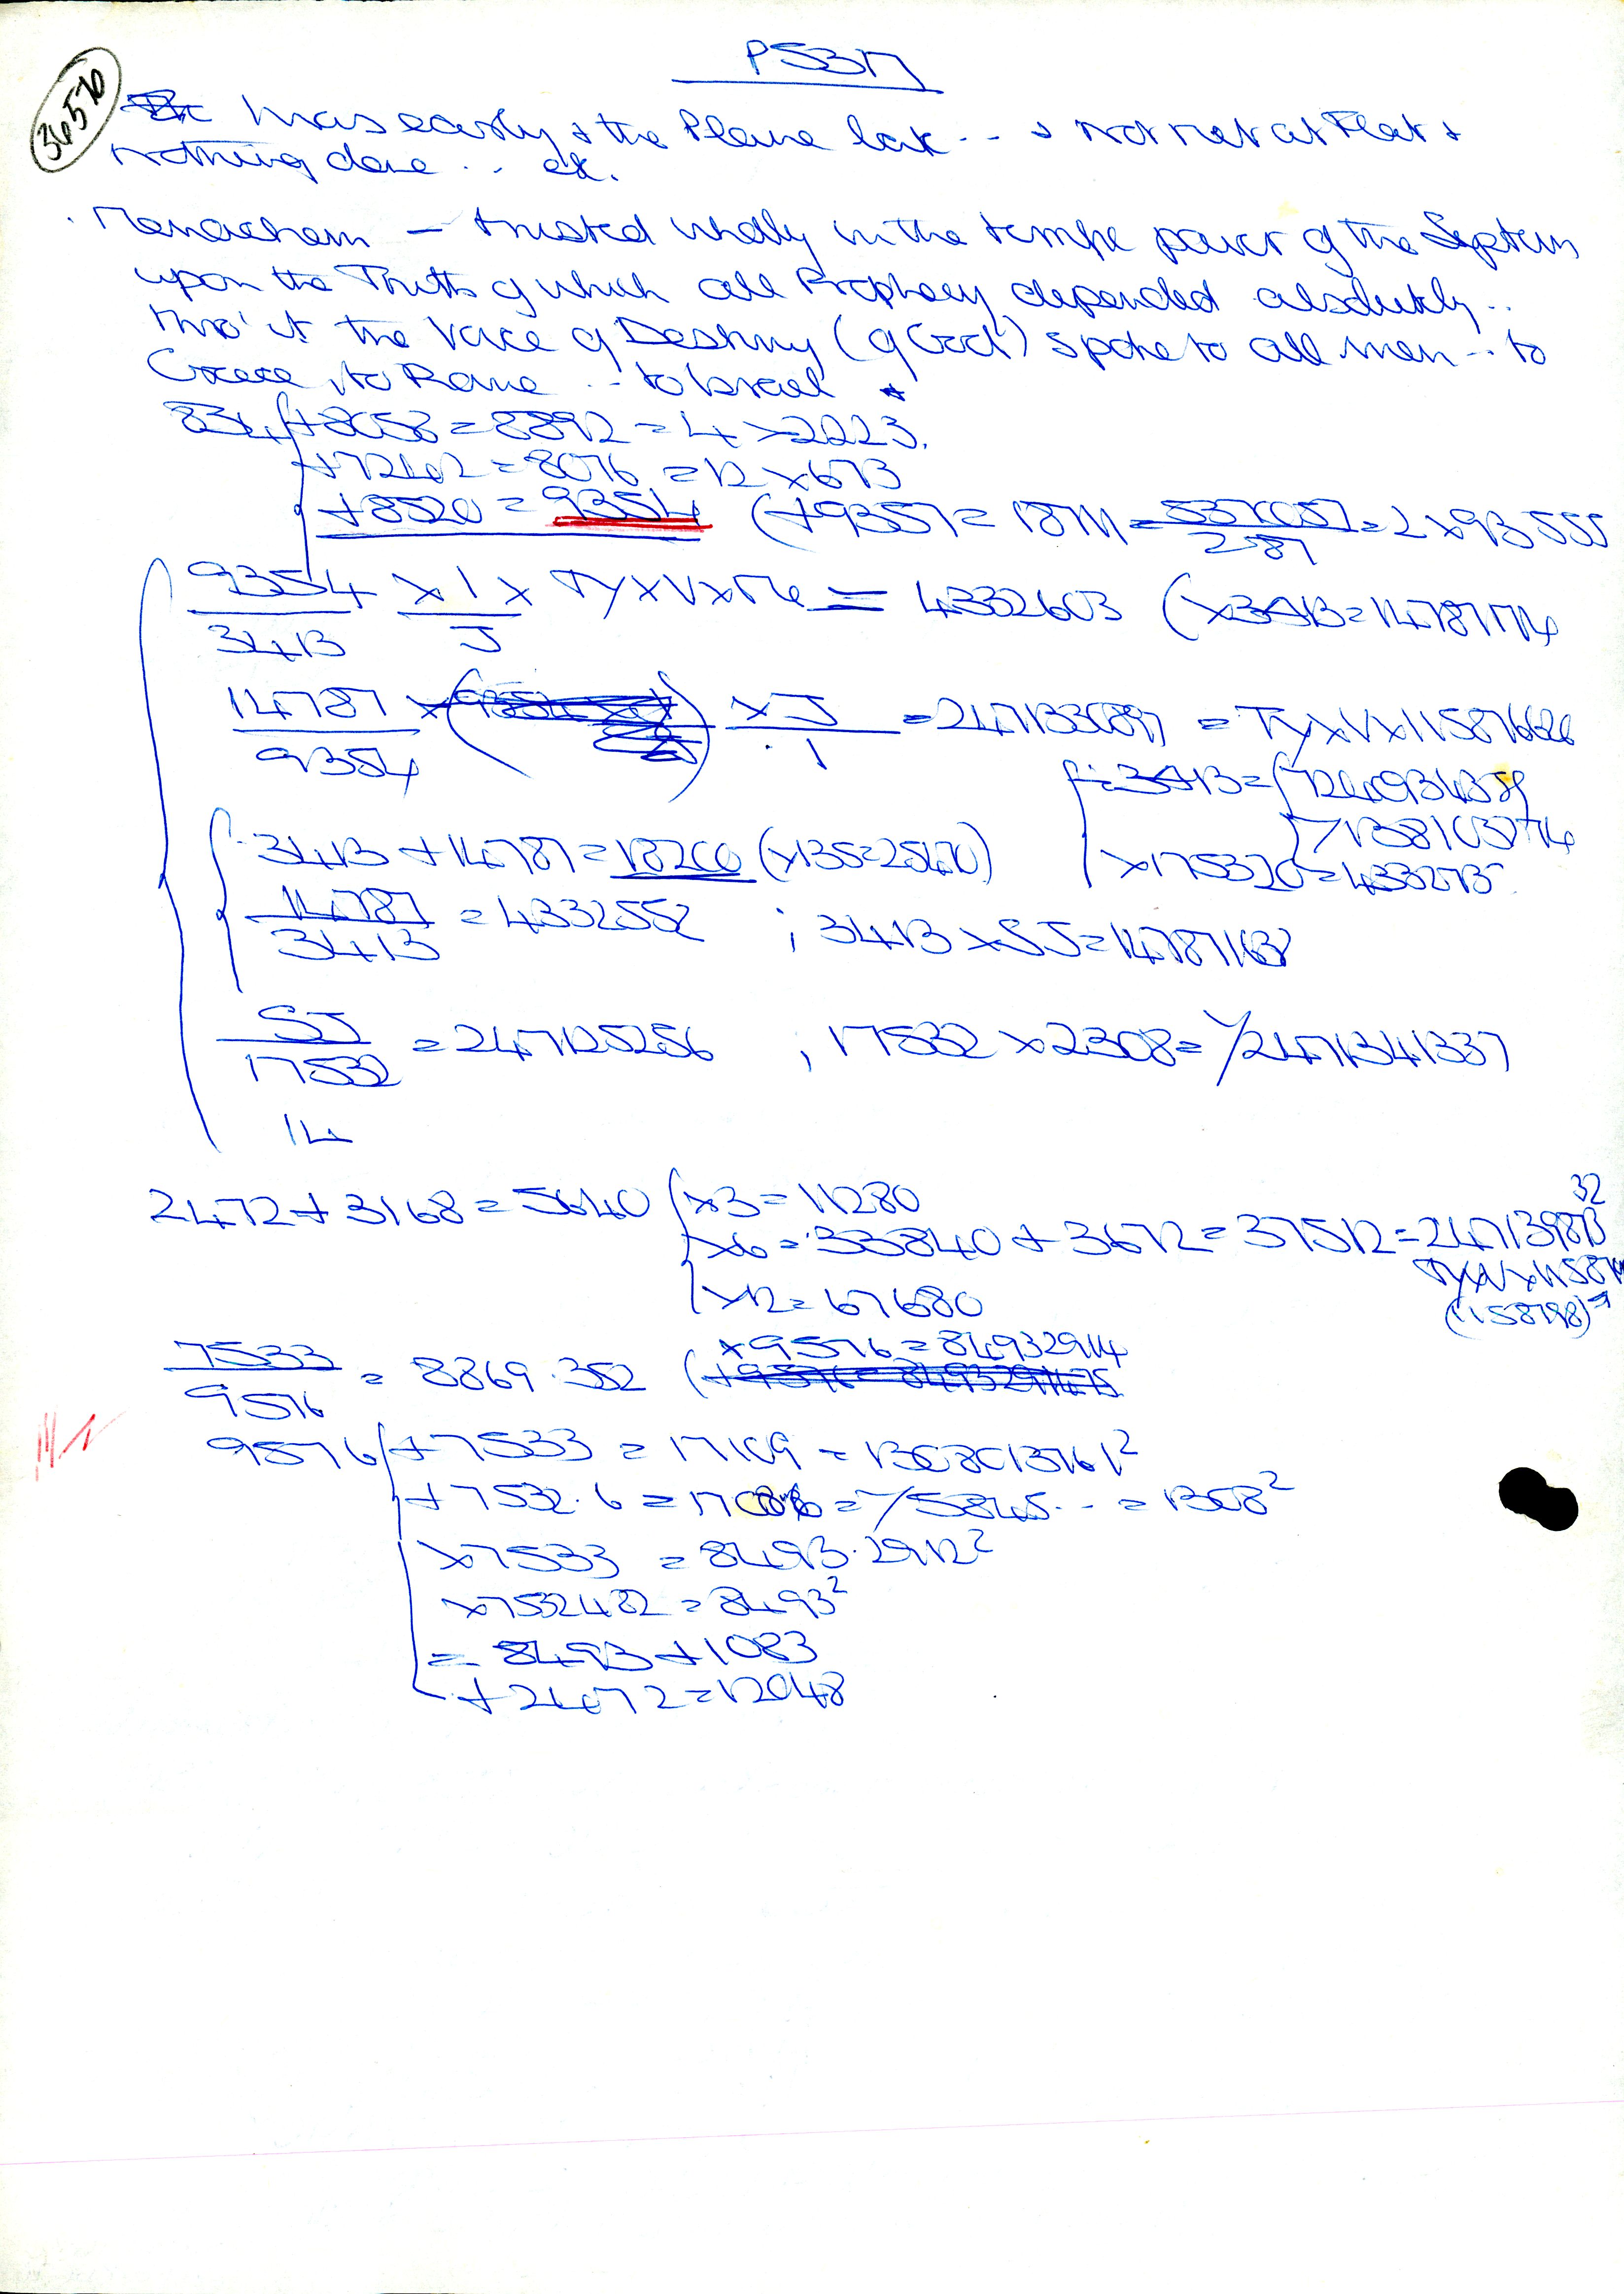 P5317
36570
I was early & the Plane late .. & not met at Flat &
nothing done .. etc.
Menachem — trusted wholly in the temple power of the System
upon the Truth of which all Prophecy depended absolutely ..
thro' it the Voice of Destiny (of God) spoke to all men .. to
Greece, to Rome .. to Israel
834 + 8058 = 8892 = 4 × 2223.
+ 7242 = 8076 = 12 × 673
+ 8520 = 9354 (+ 9357 = 18711 = 5371057 / 287 = 2 × 93555
9354 / 3413 × 1 / J × Ty × V × Me = 4332603 (× 3413 = 14787174
14787 / 9354 × J / 1 = 2471330897 = Ty × V × 115876626
÷ 3413 = 7240934359
√1381037714
3413 + 14787 = 18200 (× 135 = 24570) × 175320 = 433273
14787 / 3413 = 4332552 ; 3413 × SJ = 14787163
SJ / 17532 = 247125256 ; 17532 × 2308 = √2471341337
14
2472 + 3168 = 5640 × 3 = 11280
32
× 6 = 33840 + 3672 = 37512 = 247139873
Ty × V × 11587
(1158798)
× 12 = 67680
7533 / 9576 = 8869.352 (× 9576 = 84932914
9576 + 7533 = 17109 = 1308013761²
+ 7532.6 = 17086 = √5845 .. = 1308²
× 7533 = 8493.2912²
× 7532482 = 8493²
= 8493 + 1083
+ 2472 = 12048